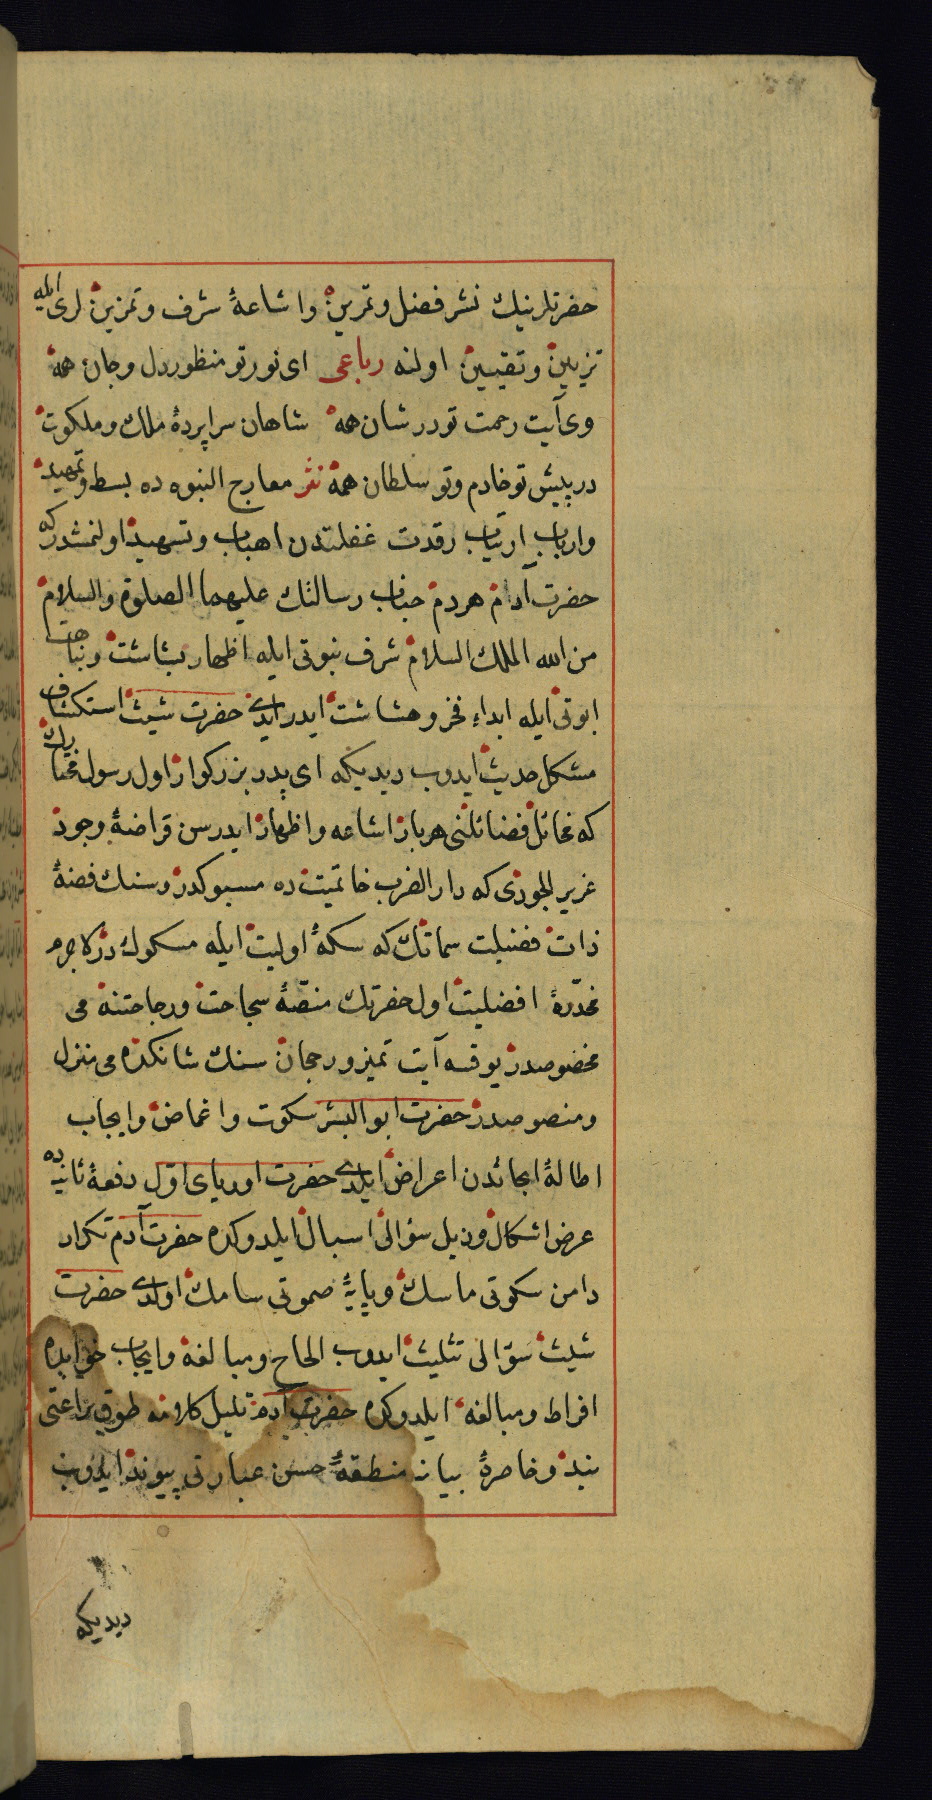 حضرتلرينك نشر فضل وتمرين واشاعۀ شرف وتمزين لرى ايله
تزيين وتقيين اولنه رباعى اى نور تو منظور دل وجان همه
وى آيت رحمت تو در شان همه شاهان سراپردۀ ملك وملكوت
در پيش تو خادم وتو سلطان همه نثر معارج النبوه ده بسط وتمهيد
وارباب ارتياب رقدت غفلتدن اهباب وتسهيد اولنمشدر كه
حضرت آدام هردم جناب رسالتك عليهما الصلوة والسلام
من الله الملك السلام شرف نبوتى ايله اظهار بشاشت ونباهت
ابوتى ايله ابداء فخر وهشاشت ايدر ايدى حضرت شيث استكشاف
مشكل حديث ايدوب ديديكه اى پدر بزركوار اول رسول مختارك
كه مخائل فضائلنى هربار اشاعه واظهار ايدرسن قراضۀ وجود
عزيز الجودى كه دار الضرب خاتميت ده مسبوكدر وسنك فضۀ
ذات فضيلت سماتك كه سكۀ اوليت ايله مسكوكدر لاجرم
مخدّرۀ افضليت اول حضرتك منصّۀ سجاحت ورجاحتنه مى
مخصوصدر يوقسه آيت تميز ورجحان سنك شانكده مى منزل
ومنصوصدر حضرت ابو البشر سكوت واغماض وايجاب
اطالۀ ابجائدن اعراض ايلدى حضرت اورياى اوّل دفعۀ ثانيه ده
عرض اشكال وذيل سؤالى اسبال ايلدوكده حضرت آدم تكرار
دامن سكوتى ماسك وپايۀ صموتى سامك اولدى حضرت
شيث سؤالى تثليث ايدوب الحاح ومبالغه وايجاب خوابده
افراط ومبالغه ايلدوكده حضرت آدم تليل كلامنه طوق براعتى
بند وخاصرۀ بيانه منطقۀ حسن عبارتى پيوند ايدوب
ديديكه